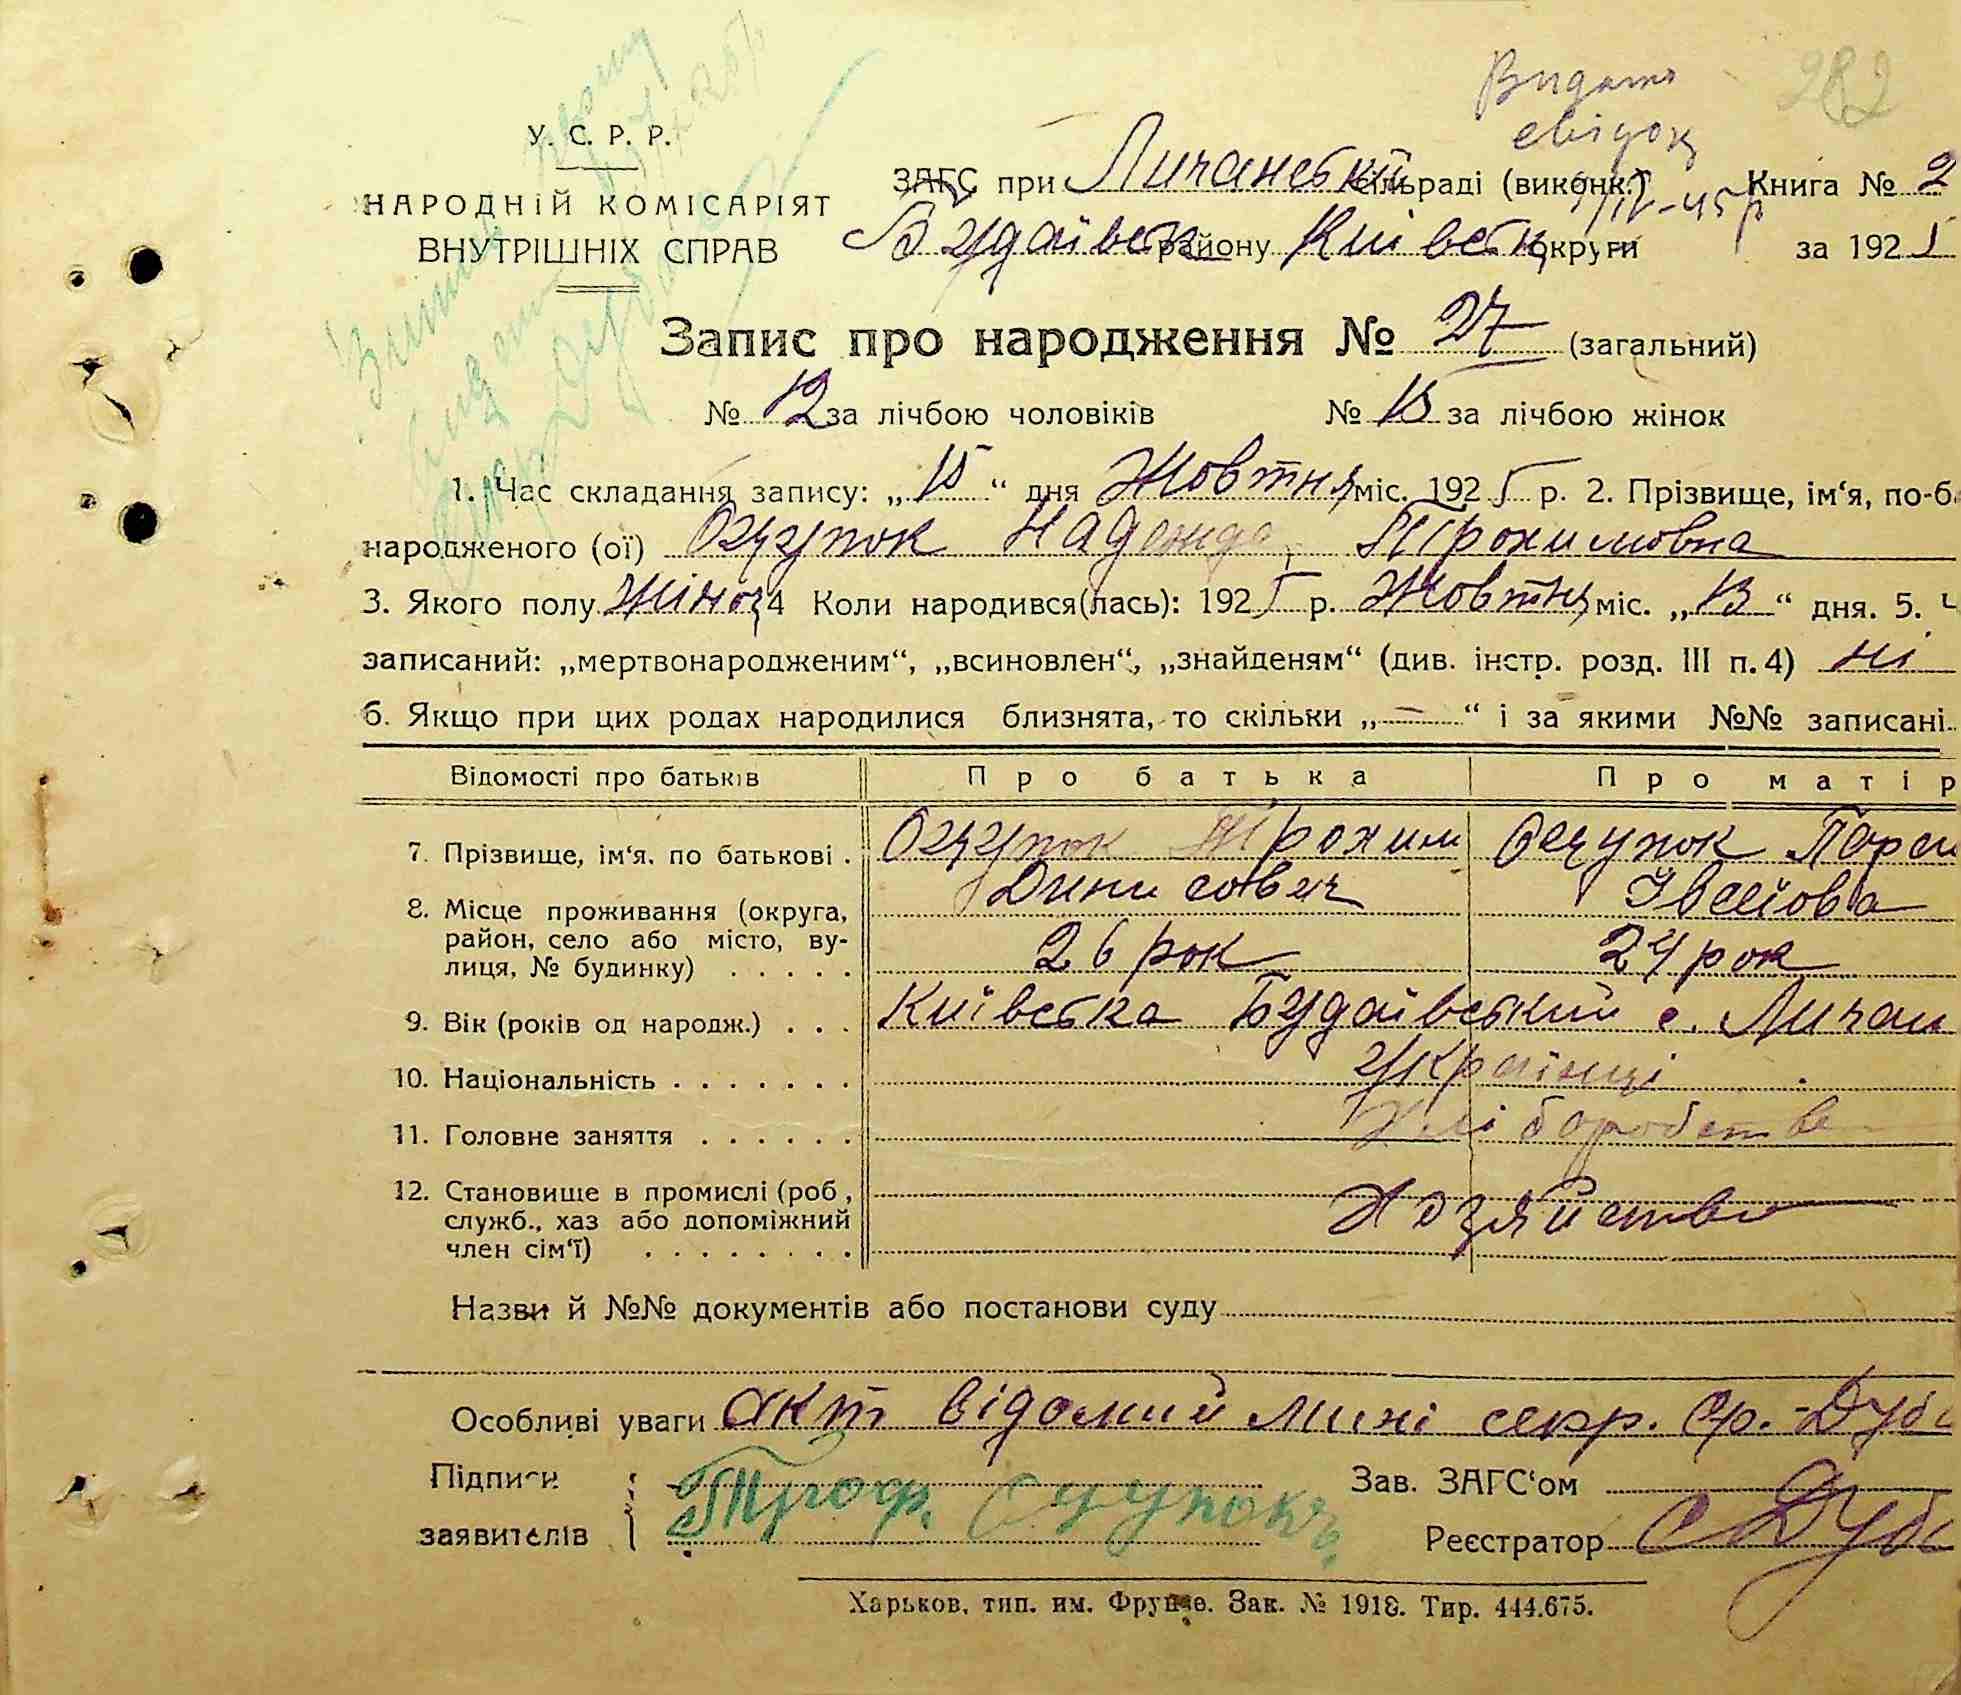 Видати
свідоц
282
У. С. Р. Р.
НАРОДНІЙ КОМІСАРІЯТ
ВНУТРІШНІХ СПРАВ
ЗАГС при Личанській сільраді (виконк.) Книга № 2
Будаївськ району Київськ округи за 1925
Запис про народження № 27 (загальний)
№ 12 за лічбою чоловіків № 15 за лічбою жінок
1. Час складання запису: „15“ дня Жовтня міс. 1925 р. 2. Прізвище, ім‘я, по-б
народженого (ої) Надежда Трохимовна
3. Якого полу Жіноч 4 Коли народився(лась): 1925 р. Жовтня міс. „13“ дня. 5. Ч
записаний: „мертвонародженим“, „всиновлен“, „знайденям“ (див. інстр. розд. III п. 4) ні
6. Якщо при цих родах народилися близнята, то скільки „—“ і за якими №№ записані
Відомості про батьків Про батька Про матір
7. Прізвище, ім‘я, по батькові . Трохим
Динисович
8. Місце проживання (округа,
район, село або місто, ву-
лиця, № будинку) . . . . . 26 рок 24 рок
9. Вік (років од народж.) . . . Київська Будаївський с. Личан
10. Національність . . . . . . . Українці
11. Головне заняття . . . . . . Хліборобство
12. Становище в промислі (роб,
служб., хаз або допоміжний
член сім‘ї) . . . . . . . . Хозяйство
Назви й №№ документів або постанови суду
Особливі уваги Акт відомий мині секр. Ср.-Дуб
Підписи Зав. ЗАГС‘ом
заявителів Троф. Реєстратор Дуб
Харьков, тип. им. Фрунзе. Зак. № 1918. Тир. 444.675.